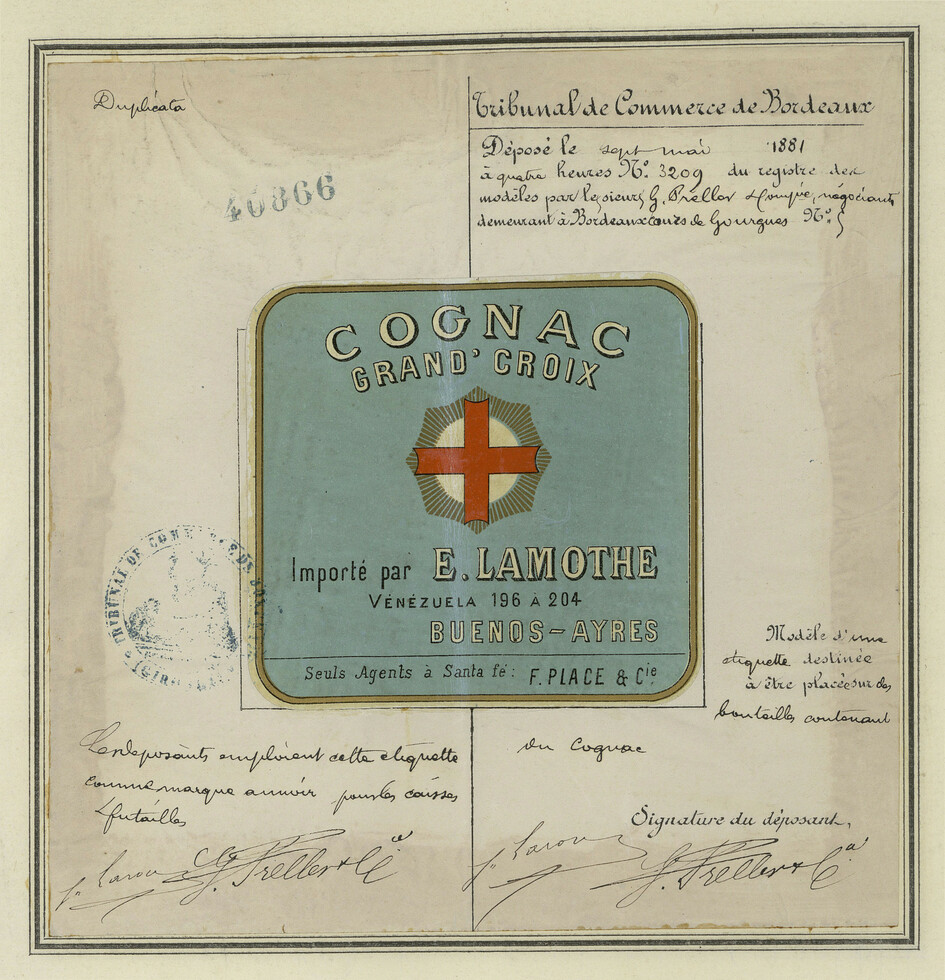 Duplicata
40866
Tribunal de Commerce de Bordeaux
Déposé le sept mai 1881
à quatre heures N° 3209 du registre des
modèles par les sieurs G. Preller & Compie, négociants
demeurant à Bordeaux cours de Gourgues N° 5
COGNAC
GRAND' CROIX
Importé par E. LAMOTHE
VÉNÉZUELA 196 À 204
BUENOS-AYRES
Seuls Agents à Santa fé: F. PLACE & Cie
TRIBUNAL DE COMMERCE DE
Modèle d'une
etiquette destinée
à être placée sur des
bouteilles contenant
du Cognac
Les deposants emploient cette etiquette
comme marque pour les caisses
& futailles
Signature du déposant,
G. Preller & Cie
G. Preller & Cie